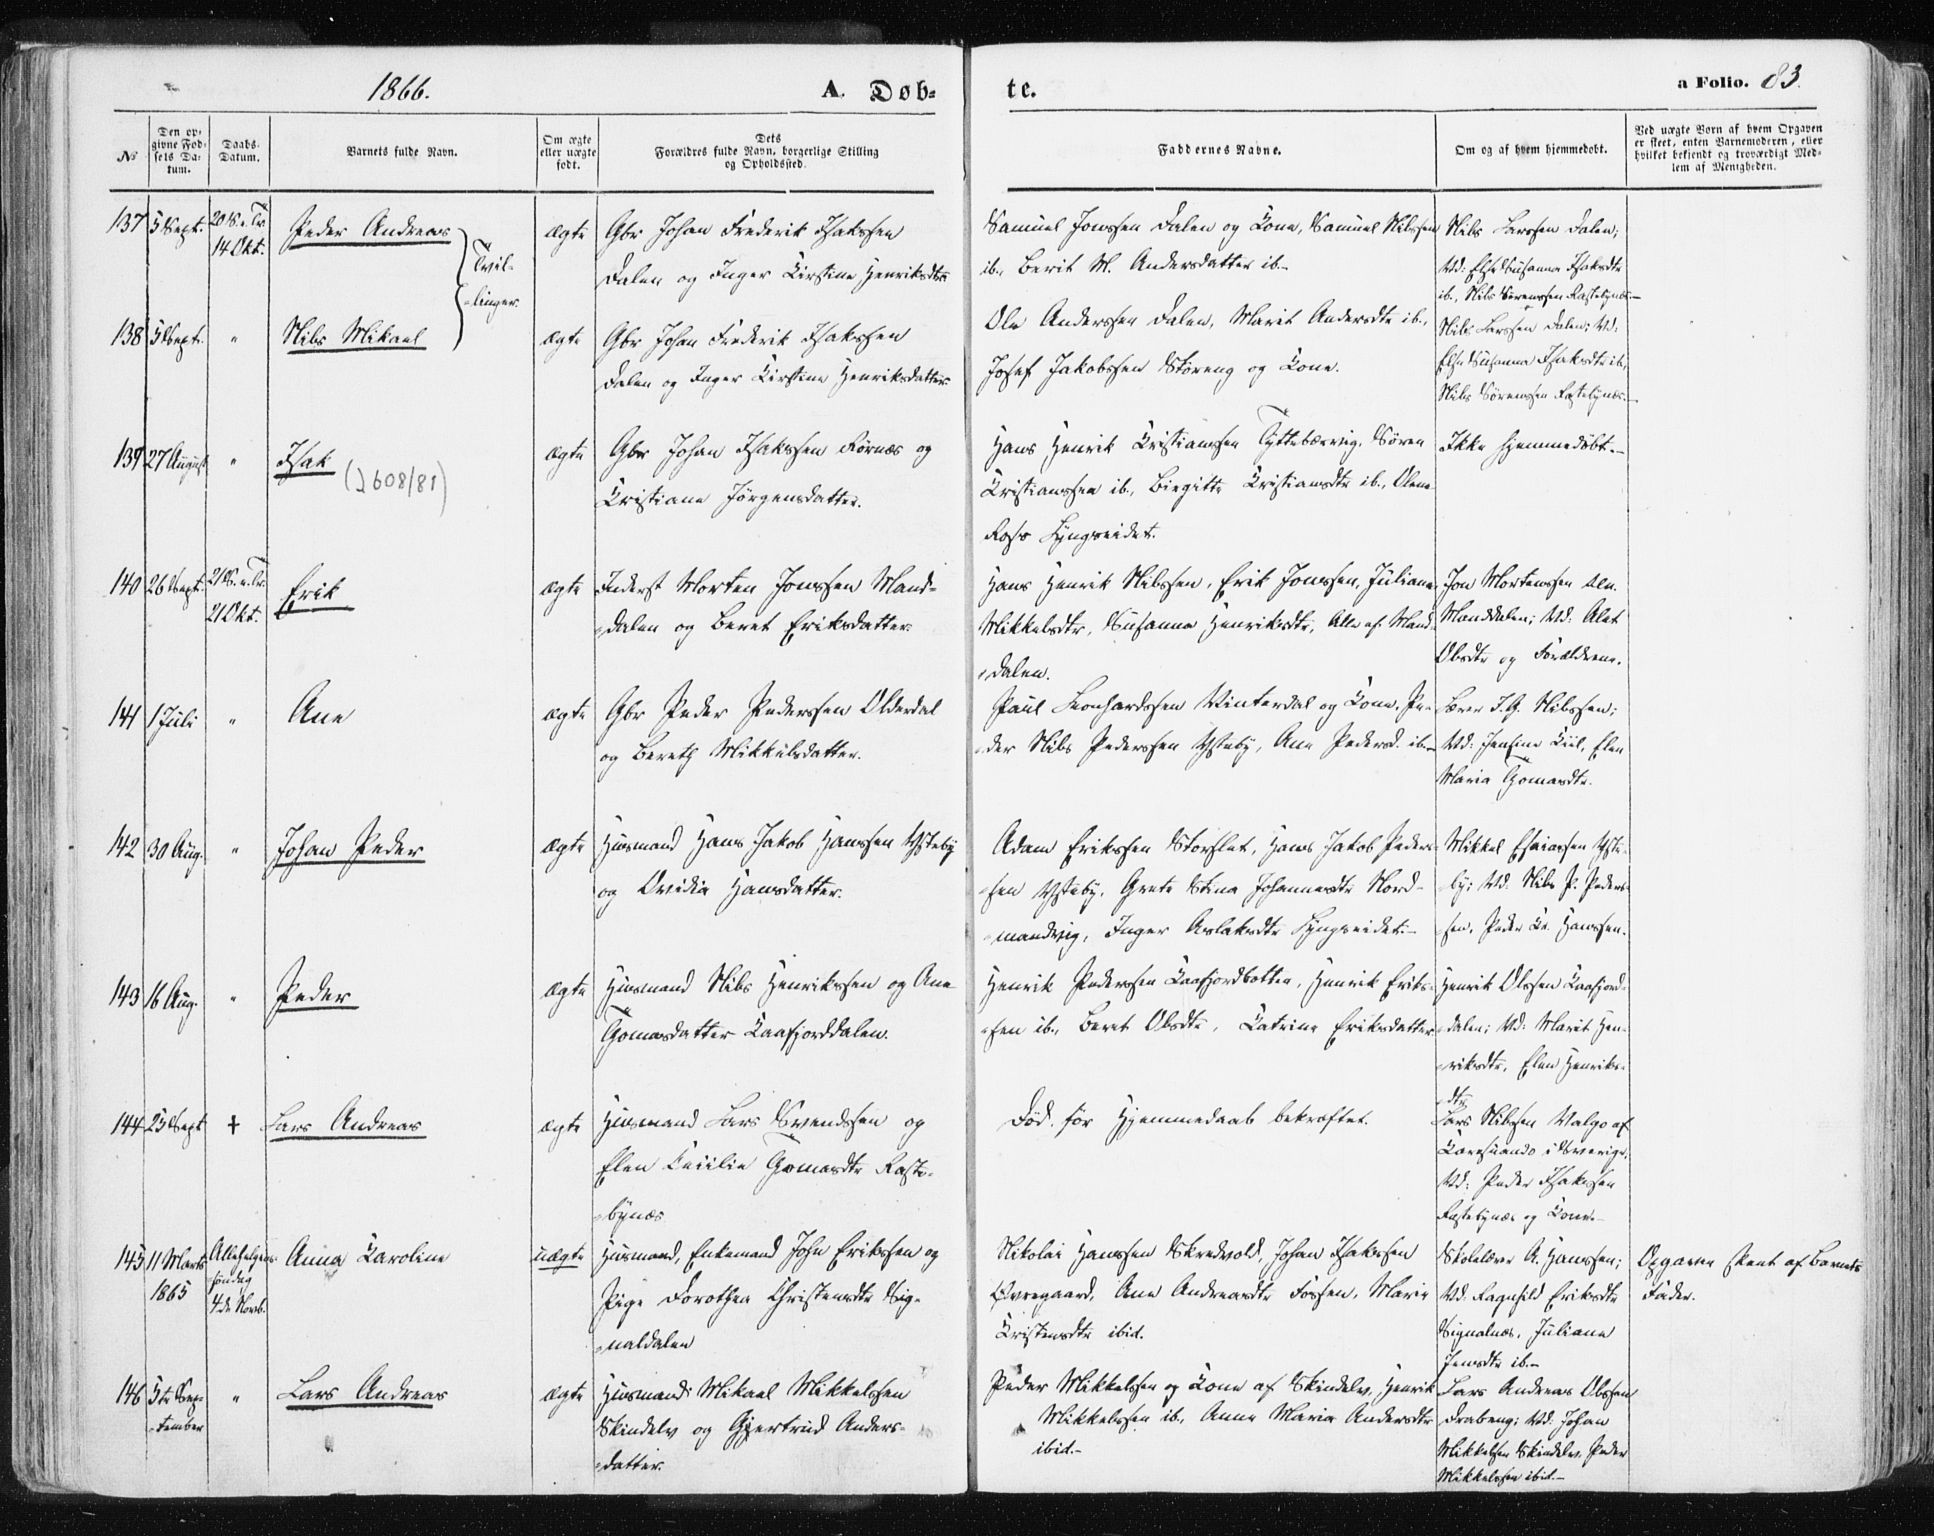 1866.
A. Døb-
te.
a Folio. 83.
No
Den op-
givne Fød-
sels Da-
tum.
Daabs-
Datum.
Barnets fulde Navn.
Om ægte
eller uægte
født.
Dets
Forældres fulde Navn, borgerlige Stilling
og Opholdssted.
Faddernes Navne.
Om og af hvem hjemmedøbt.
Ved uægte Børn af hvem Opgaven
er skeet, enten Barnemoderen, eller
hvilket bekjendt og troværdigt Med-
lem af Menigheden.
137
5 Sept.
20 S. e. Tr.
14 Okt.
Peder Andreas
Tvil-
-linger.
ægte
Gbr Johan Frederik Isakssen
Dalen og Inger Kirstine Henriksdtr
Samuel Jonssen Dalen og Kone, Samuel Nilssen
ib., Berit M. Andersdatter ib.-
Nils Larssen Dalen;
Vd: Else Susanna Isaksdtr
ib., Nils Sørenssen Rastebynæs.-
138
5 Sept.
"
Nils Mikael
ægte
Gbr Johan Frederik Isakssen
Dalen og Inger Kirstine Henriksdatter
Ole Anderssen Dalen, Marit Andersdtr ib.,
Josef Jakobssen Storeng og Kone.
Nils Larssen Dalen; Vd:
Else Susanna Isaksdtr ib.,
Nils Sørenssen Rastebynæs.-
139
27 August
"
Isak
(J 608/81)
ægte
Gbr Johan Isakssen Rørnæs og
Kristiane Jørgensdatter.
Hans Henrik Kristianssen Tyttebærvig, Søren
Kristianssen ib., Birgitte Kristiansdtr ib., Olene
Ross Lyngseidet.
Ikke hjemmedøbt.-
140
26 Sept.
21 S. e. Tr.
21 Okt.
Erik
ægte
Inderst Morten Jonssen Mand-
-dalen og Beret Eriksdatter
Hans Henrik Nilssen, Erik Jonssen, Juliane
Mikkelsdtr, Susanna Henriksdtr, Alle af Mand-
-dalen.
Jon Mortenssen
Manddalen; Vd: Alet
Olsdtr og Forældrene.
141
1 Juli
"
Ane
ægte
Gbr Peder Pederssen Olderdal
og Bereth Mikkelsdatter.
Paul Leonhardssen Vinterdal og Kone, Pe-
-der Nils Pederssen Ysteby, Ane Pedersd. ib.-
Lærer I. G. Nilssen;
Vd: Jensine Kiil, Elen
Maria Tomasdtr.
142
30 Aug.
"
Johan Peder
ægte
Husmand Hans Jakob Hanssen Ysteby
og Ovidia Hansdatter.
Adam Erikssen Storslet, Hans Jakob Peders-
-sen Ysteby, Grete Stina Johannesdtr Nord-
-mandvig, Inger Aslaksdtr Lyngseidet.-
Mikkel Esaiassen Yste-
-by; Vd. Nils P. Peders-
-sen, Peder Kr. Hanssen.
143
16 Aug.
"
Peder
ægte
Husmand Nils Henrikssen og Ane
Tomasdatter Kaafjorddalen.
Henrik Pederssen Kaafjordbotten, Henrik Eriks-
-sen ib., Beret Olsdtr, Katrine Eriksdatter
Henrik Olssen Kaafjord-
-dalen; Vd: Marit Hen-
-riksdtr, Elen Henriks-
-dtr
144
25 Sept
+
Lars Andreas
ægte
Husmand Lars Svendssen og
Elen Cecilie Tomasdtr Raste-
-bynæs
Død før Hjemmedaab bekræftet.
Lars Nilssen Valgo af
Karesuando i Sverige,
Vd: Peder Isakssen
Rastebynæs og Kone.-
145
11 Marts
1865
Allehelgens
søndag
4de Novb.
Anna Karoline
uægte
Husmand, Enkemand John Erikssen og
Pige Dorothea Christensdtr Sig-
-naldalen
Nikolai Hanssen Skredvold, Johan Isakssen
Øvregaard, Ane Andreasdtr Fossen, Marie
Kristensdtr ibid.
Skolelærer A. Hanssen;
Vd. Ragnhild Eriksdtr
Signalnæs, Juliane
Jensdtr ib.-
Opgaven skeet af Barnets
Fader.
146
5te Sep-
-tember
"
Lars Andreas
ægte
Husmand Mikael Mikkelssen
Skindelv og Gjertrud Anders-
-datter.
Peder Mikkelssen og Kone af Skindelv, Henrik
Mikkelssen ib., Anne Maria Andersdtr
ibid.-
Lars Andreas Olssen
Drabeng; Vd: Johan
Mikkelsen Skindelv, Peder
Mikkelssen ibid.-